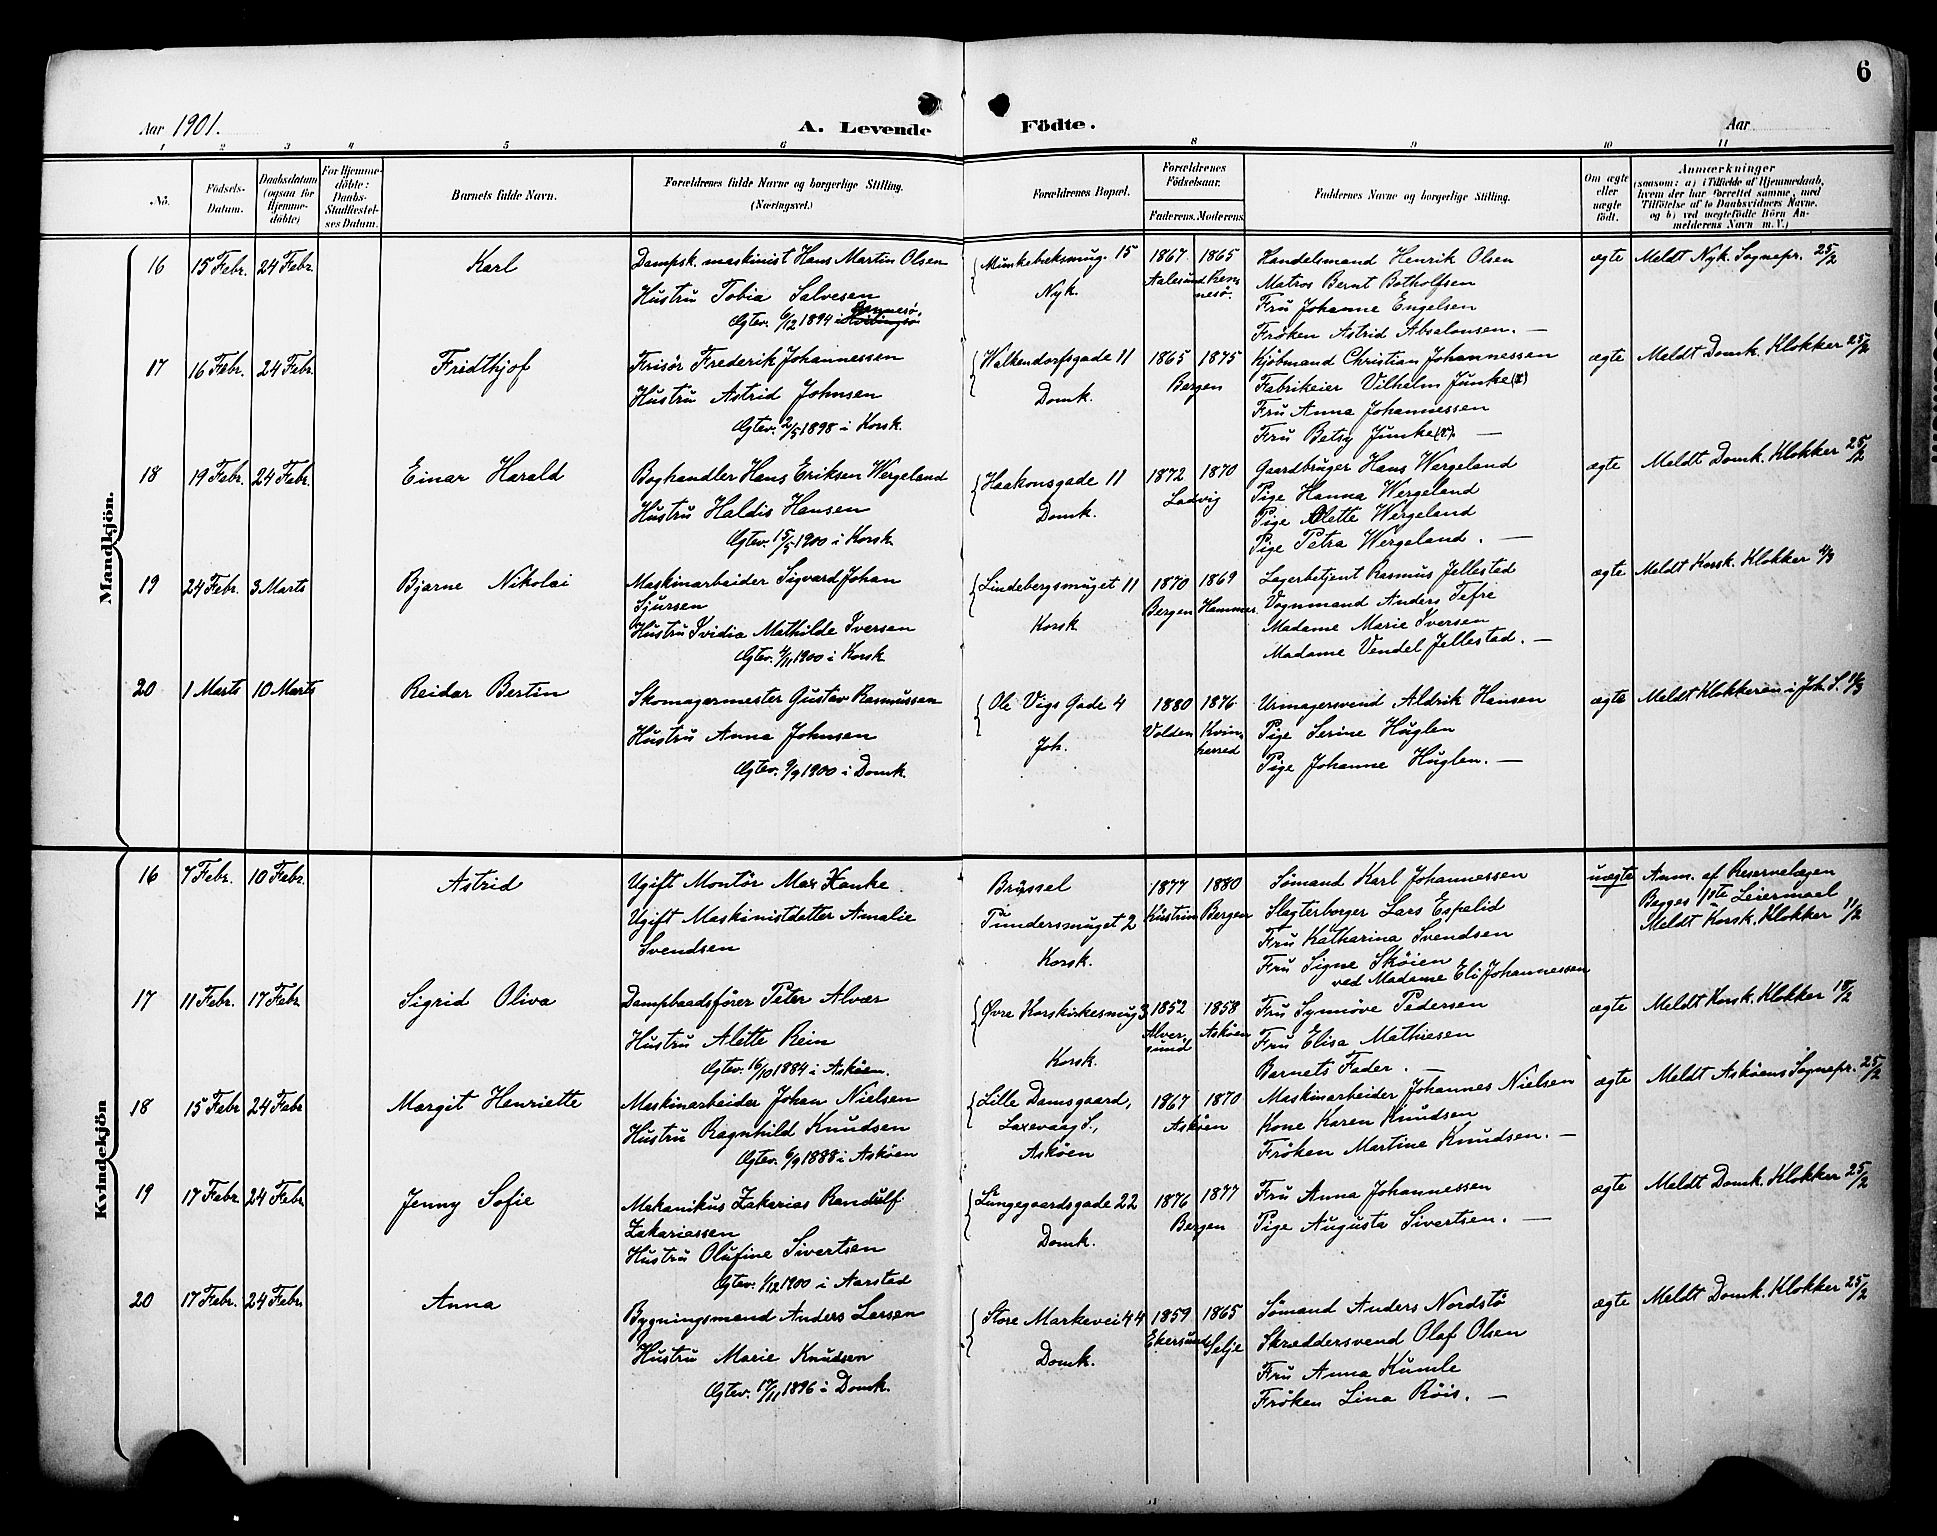 6
Aar 1901.
A. Levende Födte.
Aar
1 2 3 4 5 6 8 9 10 11
No.
Födsels-Datum.
Daabsdatum (ogsaa for Hjemmedöbte)
For Hjemmedöbte: Daabs-Stadfæstelses Datum.
Barnets fulde Navn.
Forældrenes fulde Navne og borgerlige Stilling. (Næringsvei.)
Forældrenes Bopæl.
Forældrenes Födselsaar.
Faderens. Moderens.
Faddernes Navne og borgerlige Stilling.
Om ægte eller uægte födt.
Anmærkninger
(saasom: a) i Tilfælde af Hjemmedaab, hvem der har forrettet samme, med Tilföielse af to Daabsvidners Navne, og b) ved uægtefödte Börn Anmelderens Navn m. V.)
Mandkjön.
16 15 Febr. 24 Febr. Karl
Dampsk. maskinist Hans Martin Olsen
Hustru Tobia Salvesen
Ægtev. 6/12 1894 i Rennesø.
Munkebæksmug. 15
Nyk.
1867 1865
Aalesund Rennesø.
Handelsmand Henrik Olsen
Matros Bernt Botholfsen
Fru Johanne Engelsen
Frøken Astrid Absalonsen. —
ægte Meldt Nyk. Sognepr. 25/2
17 16 Febr. 24 Febr. Fridthjof
Frisør Frederik Johannessen
Hustru Astrid Johnsen
Ægtev. 2/5 1898 i Korsk.
Walkendorfsgade 11
Domk.
1865 1875
Bergen
Kjøbmand Christian Johannessen
Fabrikeier Vilhelm Junke (x)
Fru Anna Johannessen
Fru Betsy Junke (x). —
ægte Meldt Domk. Klokker 25/2
18 19 Febr. 24 Febr. Einar Harald
Boghandler Hans Eriksen Wergeland
Hustru Haldis Hansen
Ægtev. 15/5 1900 i Korsk.
Haakonsgade 11
Domk.
1872 1870
Ladvig
Gaardbruger Hans Wergeland
Pige Hanna Wergeland
Pige Alette Wergeland
Pige Petra Wergeland. —
ægte Meldt Domk. Klokker 25/2
19 24 Febr. 3 Marts Bjarne Nikolai
Maskinarbeider Sigvard Johan
Sjursen
Hustru Ividia Mathilde Iversen
Ægtev. 4/11 1900 i Korsk
Lindebergsmuget 11
Korsk
1870 1869
Bergen Hammer.
Lagerbetjent Rasmus Jellestad
Vognmand Anders Tefre
Madame Marie Iversen
Madame Vendel Jellestad. —
ægte Meldt Korsk. Klokker 4/3
20 1 Marts 10 Marts Reidar Bertin
Skomagermester Gustav Rasmussen
Hustru Anna Johnsen
Ægtev. 9/9 1900 i Domk.
Ole Vigs Gade 4
Joh.
1880 1876
Volden Kvinherred
Urmagersvend Aldrik Hansen
Pige Serine Huglen
Pige Johanne Huglen. —
ægte Meldt Klokkeren i Joh. S. 11/3
Kvindekjön
16 7 Febr. 10 Febr. Astrid
Ugift Montör Max Hanke.
Ugift Maskinistdatter Amalie
Svendsen
Brüssel
Tundersmuget 2
Korsk.
1877 1880
Küstrin Bergen
Sømand Karl Johannessen
Slagterborger Lars Espelid
Fru Katharina Svendsen
Fru Signe Skøien
ved Madame Eli Johannessen
uægte Anm. af Reservelægen
Begges 1ste Leiermaal
Meldt Korsk. Klokker 11/2
17 11 Febr. 17 Febr. Sigrid Oliva
Dampbaadsfører Peter Alvær
Hustru Alette Rein
Ægtev. 16/10 1884 i Askøen.
Øvre Korskirkesmug 3
Korsk.
1852 1858
Alversund Askøen
Fru Synnøve Pedersen
Fru Elisa Mathiesen
Barnets Fader. —
ægte Meldt Korsk. Klokker 18/2
18 15 Febr 24 Febr Margit Henriette
Maskinarbeider Johan Nielsen
Hustru Ragnhild Knudsen
Ægtev. 6/9 1888 i Askøen
Lille Damsgaard,
Laxevaag S.,
Askøen
1867 1870
Askøen
Maskinarbeider Johannes Nielsen
Kone Karen Knudsen
Frøken Martine Knudsen. —
ægte Meldt Askøens Sognepr. 25/2
19 17 Febr 24 Febr Jenny Sofie
Mekanikus Zakarias Randulf
Zakariassen
Hustru Olufine Sivertsen
Ægtev. 1/12 1900 i Aarstad
Lungegaardsgade 22
Domk.
1876 1877
Bergen
Fru Anna Johannessen
Pige Augusta Sivertsen. —
ægte Meldt Domk. Klokker 25/2
20 17 Febr. 24 Febr. Anna
Bygningsmand Anders Larsen
Hustru Marie Knudsen
Ægtev. 17/11 1896 i Domk.
Store Markevei 44
Domk.
1859 1865
Ekersund Selje
Sømand Anders Nordstø
Skræddersvend Olaf Olsen
Fru Anna Kumle
Frøken Lina Røis. —
ægte Meldt Domk. Klokker 25/2